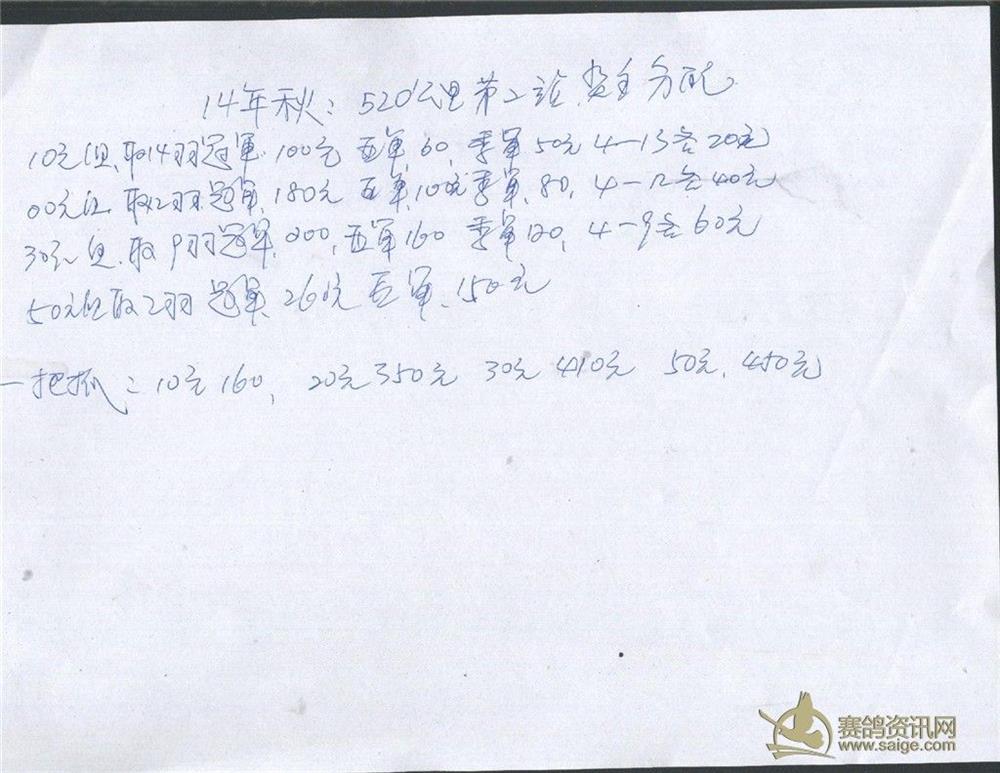 14年秋：520公里第二站.奖金分配
10元组.取14羽冠軍.100元 亚軍.60，季軍50元 4—13各20元
00元组.取12羽.冠軍.180元 亚軍.100元季軍.80，4—12各40元
30元组.取9羽冠軍.200，亚軍160 季軍120，4—9各60元
50元组取2羽冠軍.260元 亚軍.150元
一把抓：10元160， 20元350元 30元410元 50元.450元
赛鸽资讯网
www.saige.com